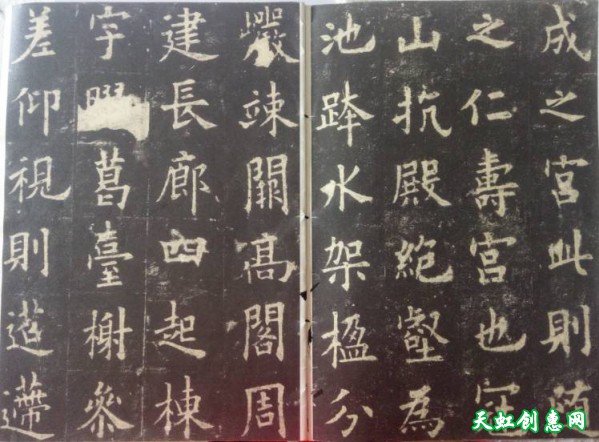 成之宮此則隨
之仁壽宮也冠
山抗殿絕壑為
池跨水架楹分
巖竦闕高閣周
建長廊四起棟
宇葛臺榭參
差仰視則迢遰
天虹创惠网